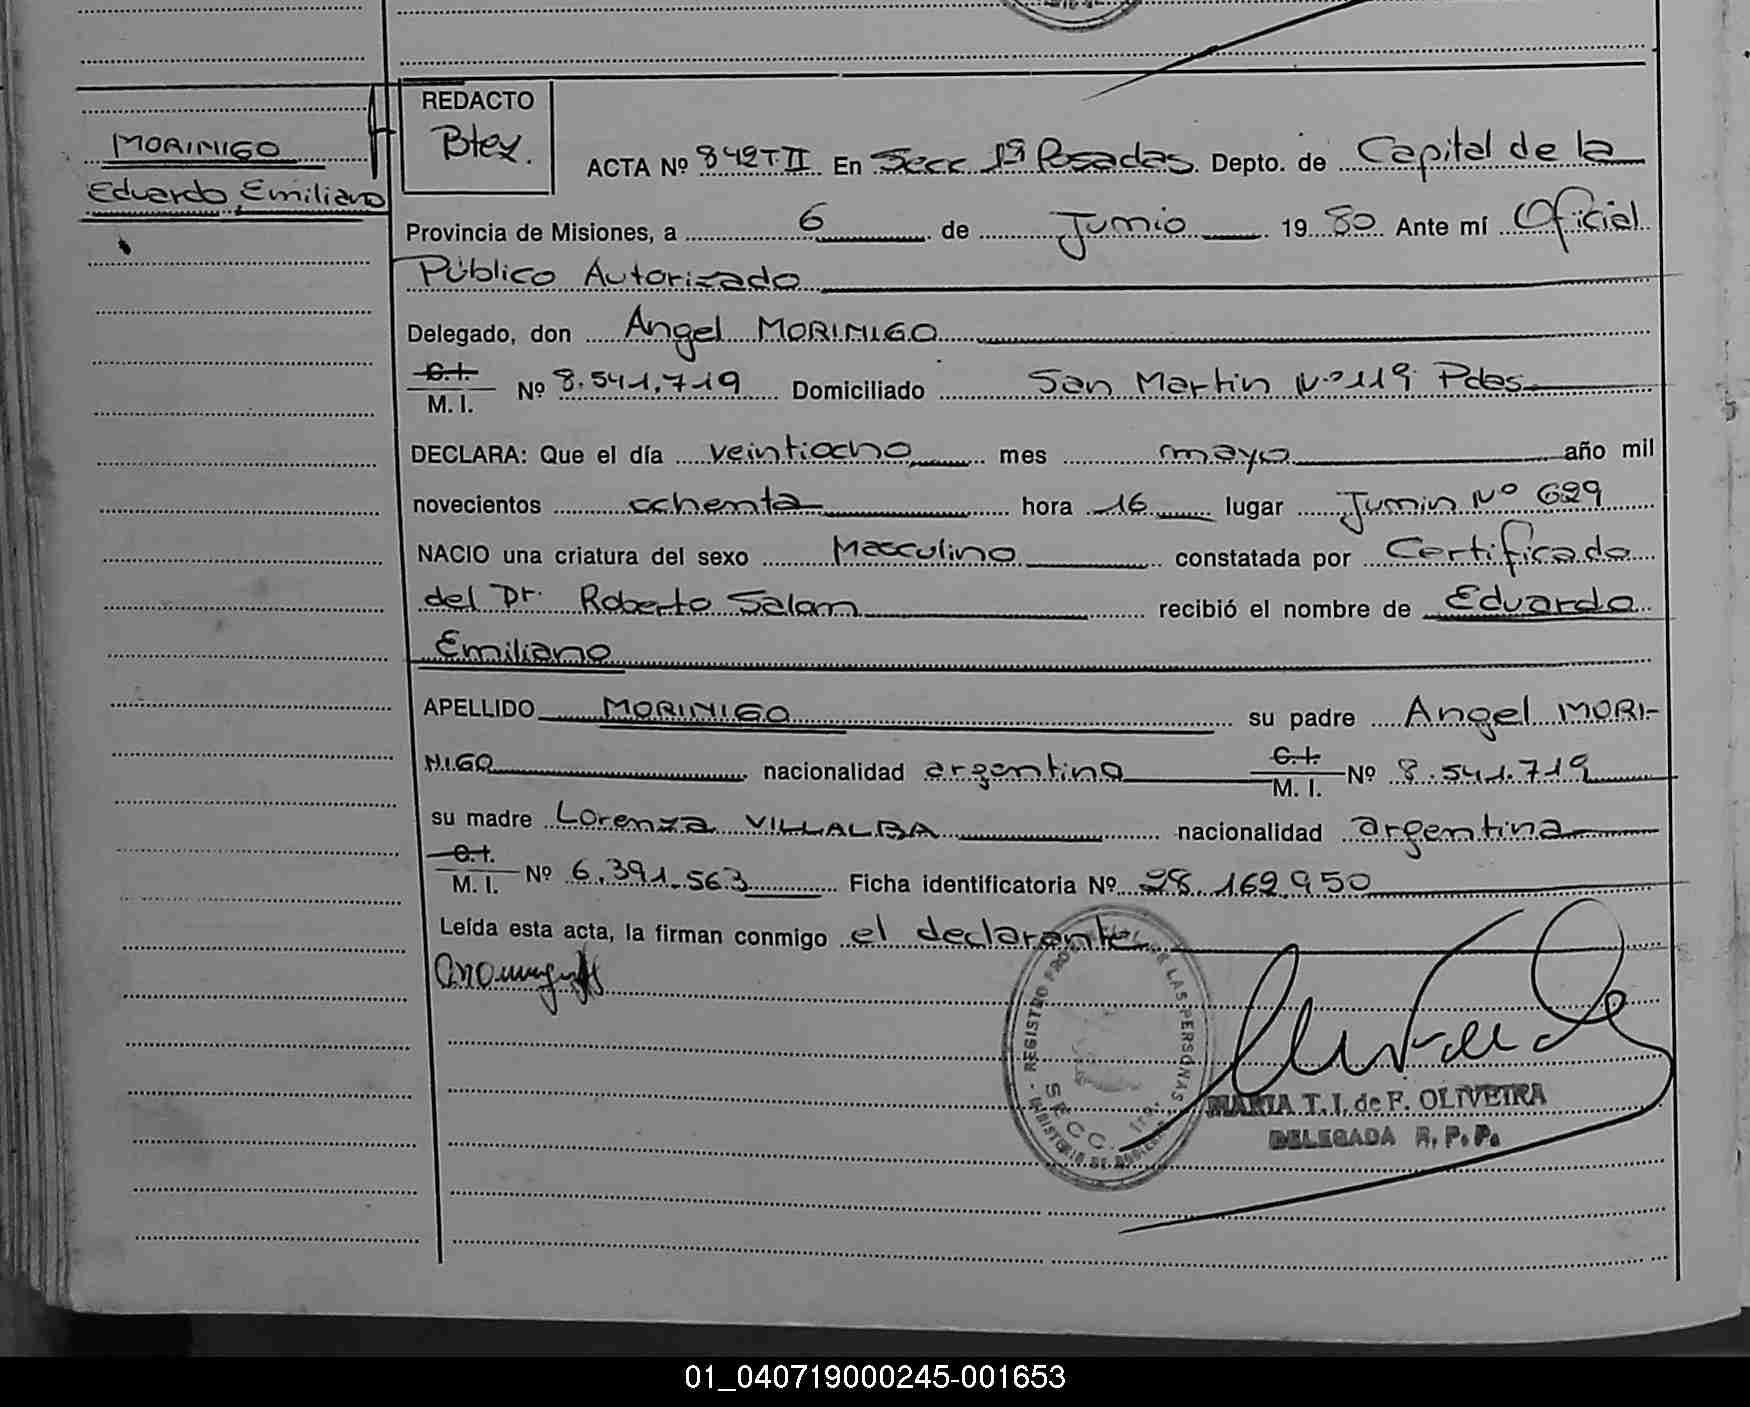 MORINIGO
Eduardo Emiliano
REDACTO
Btex.
ACTA Nº 842 T II En Secc 1ª Posadas. Depto. de Capital de la
Provincia de Misiones, a 6 de Junio 19 80 Ante mí Oficial
Público Autorizado
Delegado, don Angel MORINIGO
C.I.
M. I. Nº 8.541.719 Domiciliado San Martin Nº 119 Pdas.
DECLARA: Que el día veintiocho mes mayo año mil
novecientos ochenta hora 16 lugar Junin Nº 629
NACIO una criatura del sexo Masculino constatada por Certificado
del Dr. Roberto Salam recibió el nombre de Eduardo
Emiliano
APELLIDO MORINIGO su padre Angel MORI-
NIGO nacionalidad argentina C.I. M. I. Nº 8.541.719
su madre Lorenza VILLALBA nacionalidad argentina
C.I.
M. I. Nº 6.391.563 Ficha identificatoria Nº 28.162.950
Leída esta acta, la firman conmigo el declarante
REGISTRO PROV. DE LAS PERSONAS
SECC. 1ra.
MINISTERIO DE GOBIERNO
MARIA T. I. de F. OLIVEIRA
DELEGADA R. P. P.
01_040719000245-001653